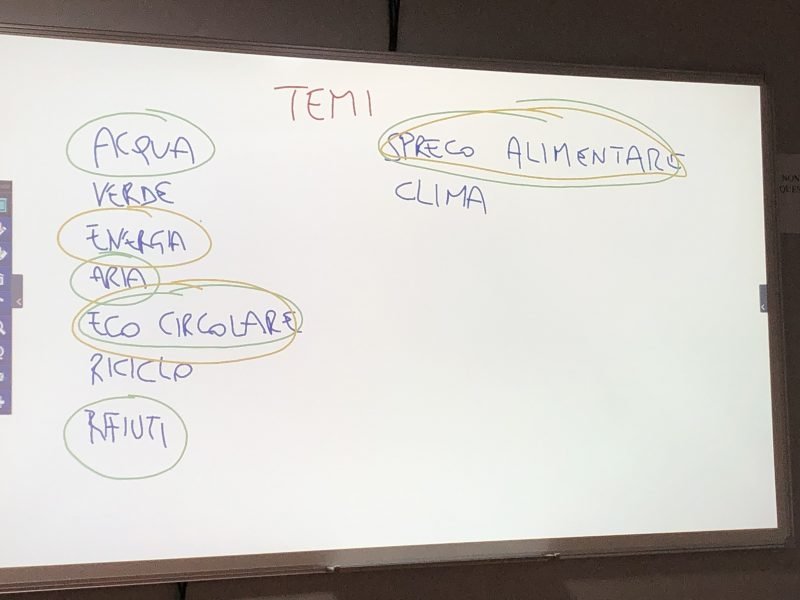 TEMI
ACQUA
VERDE
ENERGIA
ARIA
ECO CIRCOLARE
RICICLO
RIFIUTI
SPRECO ALIMENTARE
CLIMA
NON